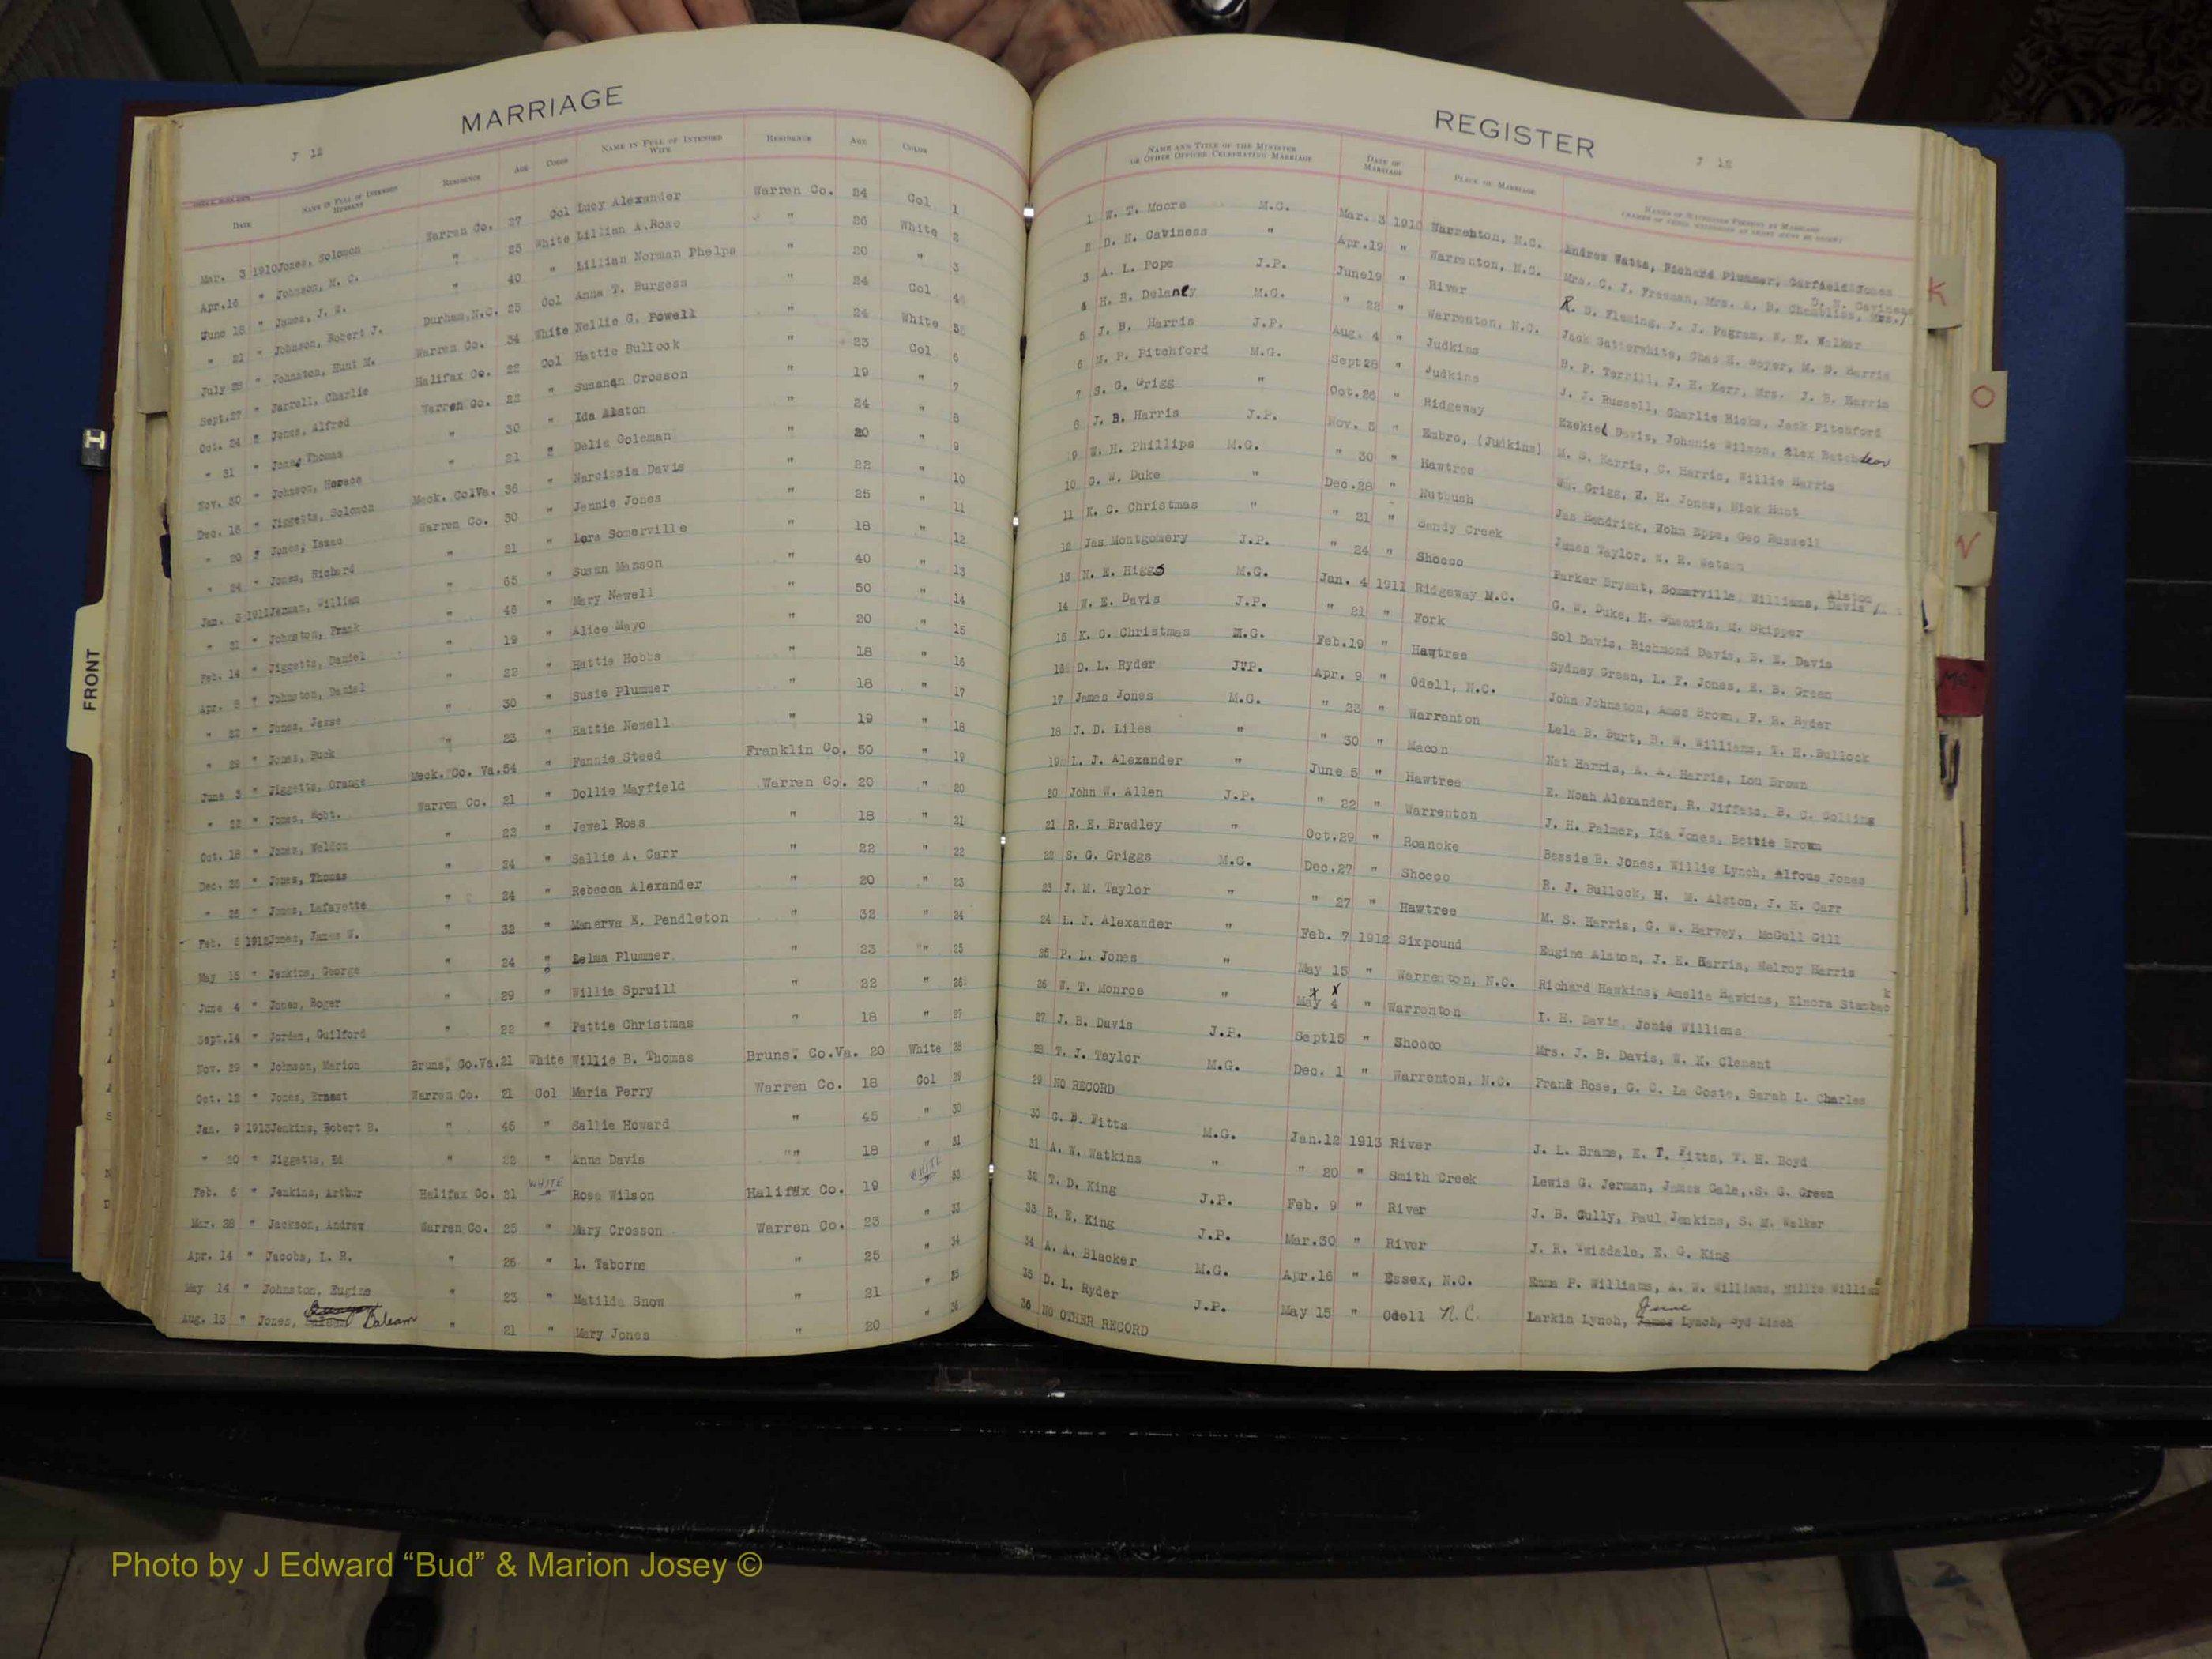 MARRIAGE
J 12
DATE NAME IN FULL OF INTENDED HUSBAND RESIDENCE AGE COLOR NAME IN FULL OF INTENDED WIFE RESIDENCE AGE COLOR
Mar. 3 1910 Jones, Solomon Warren Co. 27 Col Lucy Alexander Warren Co. 24 Col 1
Apr.16 " Johnson, M. C. " 25 White Lillian A.Rose " 26 White 2
June 18 " James, J. W. " 40 " Lillian Norman Phelps " 20 " 3
" 21 " Johnson, Robert J. Durham,N.C. 25 Col Anna T. Burgess " 24 Col 4
July 28 " Johnston, Hunt M. Warren Co. 34 White Nellie G. Powell " 24 White 5
Sept.27 " Jarrell, Charlie Halifax Co. 22 Col Hattie Bullock " 23 Col 6
Oct. 24 " Jones, Alfred Warren Co. 22 " Susanan Crosson " 19 " 7
" 31 " Jones Thomas " 30 " Ida Alston " 24 " 8
Nov. 30 " Johnson, Horace " 21 " Delia Coleman " 20 " 9
Dec. 16 " Jiggetts, Solomon Meck. CoVa. 36 " Narcissia Davis " 22 " 10
" 20 " Jones, Isaac Warren Co. 30 " Jennie Jones " 25 " 11
" 24 " Jones, Richard " 21 " Lora Somerville " 18 " 12
Jan. 3 1911 Jerman, William " 65 " Susan Manson " 40 " 13
" 21 " Johnston, Frank " 45 " Mary Newell " 50 " 14
Feb. 14 " Jiggetts, Daniel " 19 " Alice Mayo " 20 " 15
Apr. 8 " Johnston, Daniel " 22 " Hattie Hobbs " 18 " 16
" 22 " Jones, Jesse " 30 " Susie Plummer " 18 " 17
" 29 " Jones, Buck " 23 " Hattie Newell " 19 " 18
June 3 " Jiggetts, Orange Meck. Co. Va.54 " Fannie Steed Franklin Co. 50 " 19
" 22 " Jones, Robt. Warren Co. 21 " Dollie Mayfield Warren Co. 20 " 20
Oct. 18 " Jones, Weldon " 22 " Jewel Ross " 18 " 21
Dec. 26 " Jones, Thomas " 24 " Sallie A. Carr " 22 " 22
" 26 " Jones, Lafayette " 24 " Rebecca Alexander " 20 " 23
Feb. 6 1912 Jones, James W. " 32 " Manerva E. Pendleton " 32 " 24
May 15 " Jenkins, George " 24 " Selma Plummer " 23 " 25
June 4 " Jones, Roger " 29 " Willie Spruill " 22 " 26
Sept.14 " Jordan, Guilford " 22 " Pattie Christmas " 18 " 27
Nov. 29 " Johnson, Marion Bruns, Co.Va.21 White Willie B. Thomas Bruns. Co.Va. 20 White 28
Oct. 12 " Jones, Ernest Warren Co. 21 Col Maria Perry Warren Co. 18 Col 29
Jan. 9 1913 Jenkins, Robert B. " 45 " Sallie Howard " 45 " 30
" 20 " Jiggetts, Ed " 22 " Anna Davis " 18 " 31
Feb. 6 " Jenkins, Arthur Halifax Co. 21 WHITE " Rose Wilson Halifax Co. 19 WHITE " 32
Mar. 28 " Jackson, Andrew Warren Co. 25 " Mary Crosson Warren Co. 23 " 33
Apr. 14 " Jacobs, L. R. " 26 " L. Taborne " 25 " 34
May 14 " Johnston, Eugine " 23 " Matilda Snow " 21 " 35
Aug. 13 " Jones, Balsam " 21 " Mary Jones " 20 " 36
REGISTER
J 12
NAME AND TITLE OF THE MINISTER OR OTHER OFFICER CELEBRATING MARRIAGE DATE OF MARRIAGE PLACE OF MARRIAGE
1 W. T. Moore M.G. Mar. 3 1910 Warrenton, N.C. Andrew Watts, Richard Plummer, Garfield Jones
2 D. N. Caviness " Apr.19 " Warrenton, N.C. Mrs. C. J. Freeman, Mrs. A. B. Chamblien, Mrs./ D. N. Caviness
3 A. L. Pope J.P. June19 " River R. B. Fleming, J. J. Pegram, W. H. Walker
4 H. B. Delaney M.G. " 22 " Warrenton, N.C. Jack Satterwhite, Chas H. Boyer, M. S. Harris
5 J. B. Harris J.P. Aug. 4 " Judkins B. P. Terrill, J. H. Kerr, Mrs. J. B. Harris
6 M. P. Pitchford M.G. Sept28 " Judkins J. J. Russell, Charlie Hicks, Jack Pitchford
7 S. G. Grigg " Oct.26 " Ridgeway Ezekiel Davis, Johnnie Wilson, Alex Batchelor
8 J. B. Harris J.P. Nov. 5 " Embro, (Judkins) M. S. Harris, C. Harris, Willie Harris
9 W. H. Phillips M.G. " 30 " Hawtree Wm. Grigg, W. H. Jones, Nick Hunt
10 G. W. Duke " Dec.28 " Nutbush Jas Hendrick, John Epps, Geo Russell
11 K. C. Christmas " " 21 " Sandy Creek James Taylor, W. R. Watson
12 Jas Montgomery J.P. " 24 " Shocco Parker Bryant, Somerville Williams, Davis / Alston
13 N. E. Higgs M.G. Jan. 4 1911 Ridgeway N.C. G. W. Duke, H. Shearin, M. Skipper
14 W. E. Davis J.P. " 21 " Fork Sol Davis, Richmond Davis, B. E. Davis
15 K. C. Christmas M.G. Feb.19 " Hawtree Sydney Green, L. F. Jones, E. B. Green
16 D. L. Ryder J.P. Apr. 9 " Odell, N.C. John Johnston, Amos Brown, F. R. Ryder
17 James Jones M.G. " 23 " Warrenton Lela B. Burt, B. W. Williams, T. H. Bullock
18 J. D. Liles " " 30 " Macon Nat Harris, A. A. Harris, Lou Brown
19 L. J. Alexander " June 5 " Hawtree E. Noah Alexander, R. Jiffets, B. C. Collins
20 John W. Allen J.P. " 22 " Warrenton J. H. Palmer, Ida Jones, Bettie Brown
21 R. E. Bradley " Oct.29 " Roanoke Bessie B. Jones, Willie Lynch, Alfous Jones
22 S. G. Griggs M.G. Dec.27 " Shocco R. J. Bullock, H. M. Alston, J. H. Carr
23 J. M. Taylor " " 27 " Hawtree M. S. Harris, G. W. Harvey, McGull Gill
24 L. J. Alexander " Feb. 7 1912 Sixpound Eugine Alston, J. E. Harris, Melroy Harris
25 P. L. Jones " May 15 " Warrenton, N.C. Richard Hawkins, Amelie Hawkins, Elnora Stambac k
26 W. T. Monroe " x x May 4 " Warrenton I. H. Davis, Jonie Williams
27 J. B. Davis J.P. Sept15 " Shocco Mrs. J. B. Davis, W. K. Clement
28 T. J. Taylor M.G. Dec. 1 " Warrenton, N.C. Frank Rose, G. C. La Coste, Sarah L. Charles
29 NO RECORD
30 G. B. Fitts M.G. Jan.12 1913 River J. L. Brame, E. T. Fitts, T. H. Boyd
31 A. W. Watkins " " 20 " Smith Creek Lewis G. Jerman, James Gale,.S. G. Green
32 T. D. King J.P. Feb. 9 " River J. B. Gully, Paul Jenkins, S. M. Walker
33 B. E. King J.P. Mar.30 " River J. R. Twisdale, E. G. King
34 A. A. Blacker M.G. Apr.16 " Essex, N.C. Emma P. Williams, A. W. Williams, Millie Williams
35 D. L. Ryder J.P. May 15 " Odell N.C. Larkin Lynch, James June Lynch, Syd Linch
36 NO OTHER RECORD
FRONT
K
O
V
Mc.
Photo by J Edward “Bud” & Marion Josey ©